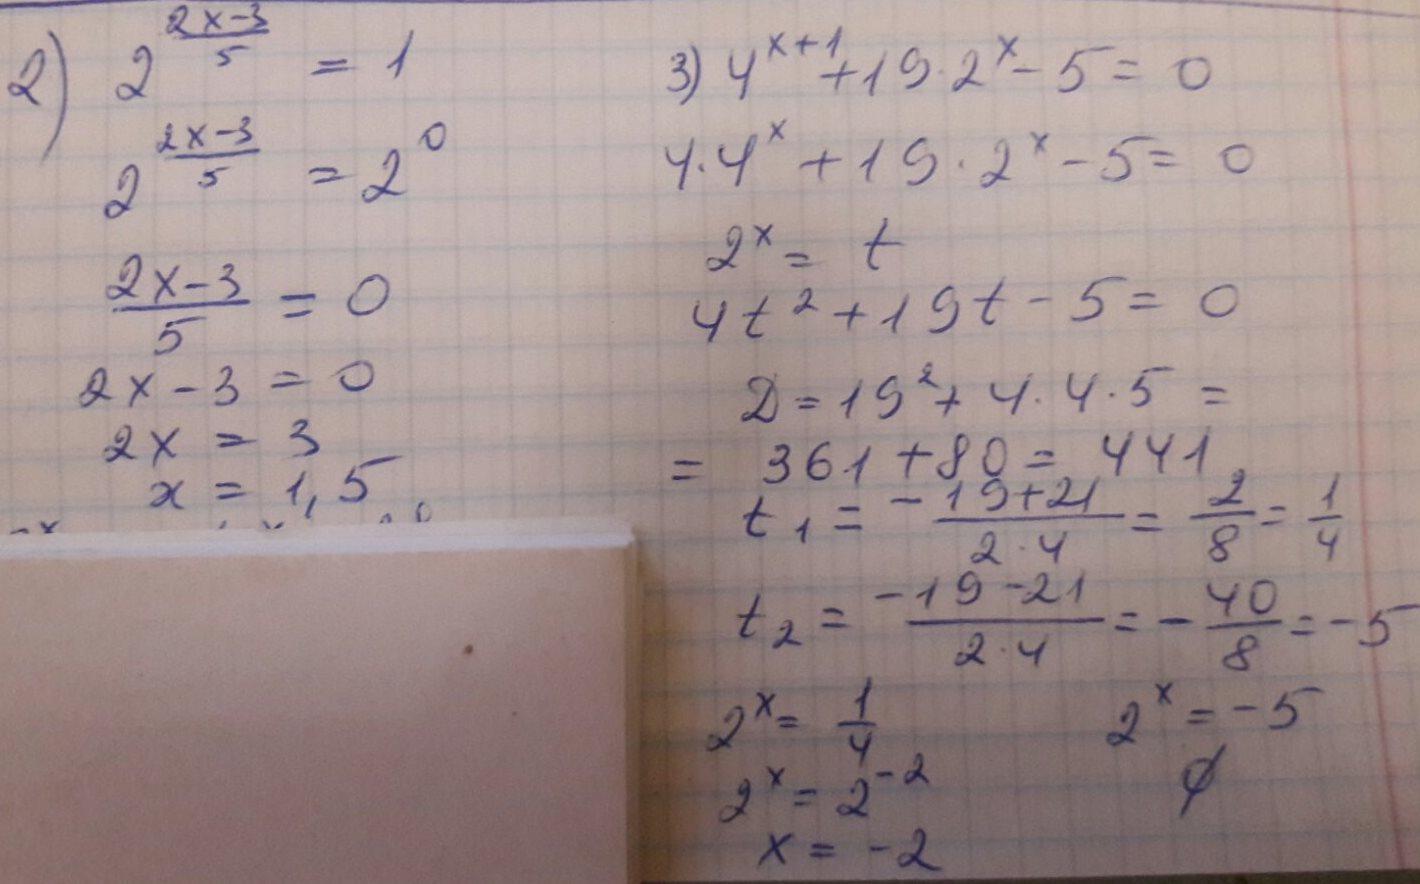 2) 2^{\frac{2x-3}{5}} = 1
2^{\frac{2x-3}{5}} = 2^0
\frac{2x-3}{5} = 0
2x - 3 = 0
2x = 3
x = 1,5
3) 4^{x+1} + 19 \cdot 2^x - 5 = 0
4 \cdot 4^x + 19 \cdot 2^x - 5 = 0
2^x = t
4t^2 + 19t - 5 = 0
D = 19^2 + 4 \cdot 4 \cdot 5 =
= 361 + 80 = 441
t_1 = \frac{-19+21}{2 \cdot 4} = \frac{2}{8} = \frac{1}{4}
t_2 = \frac{-19-21}{2 \cdot 4} = -\frac{40}{8} = -5
2^x = \frac{1}{4} 2^x = -5
2^x = 2^{-2} ∅
x = -2